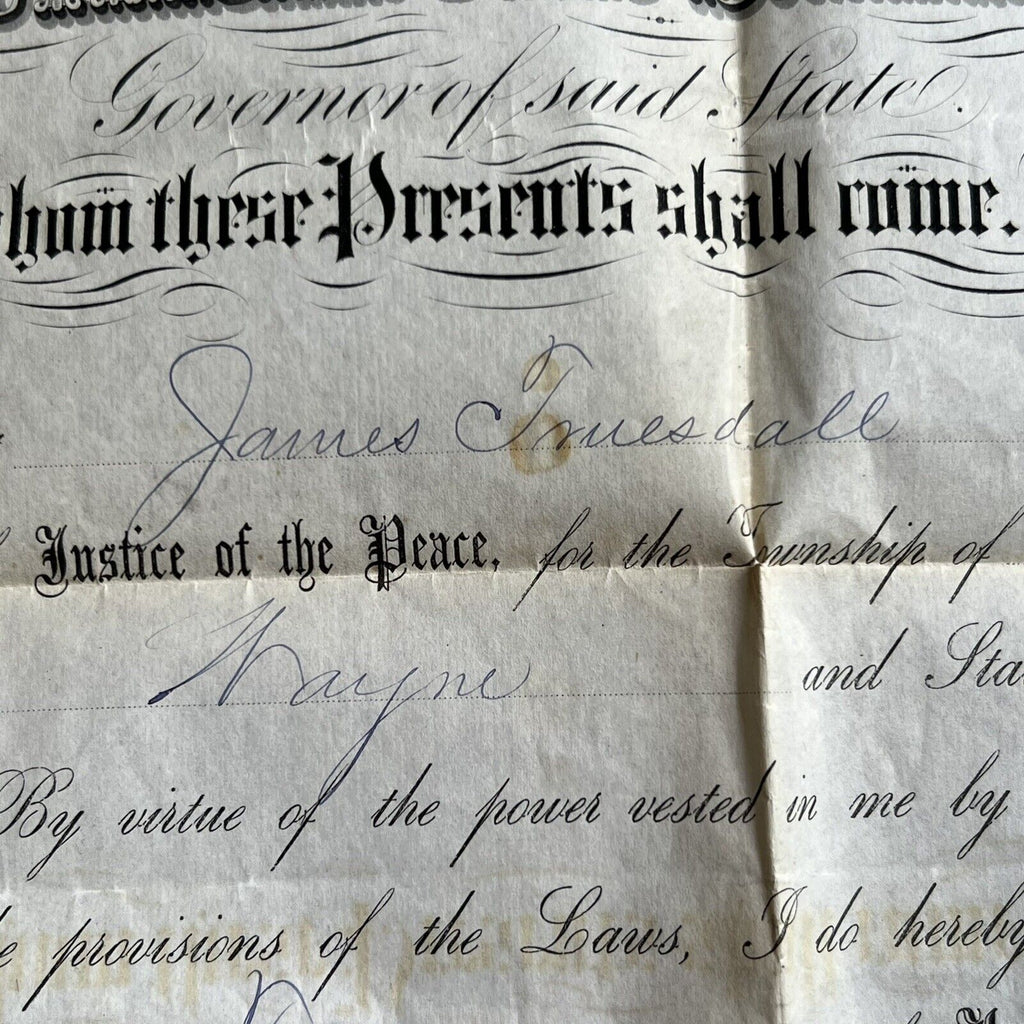 Governor of said State.
whom these Presents shall come.
James Truesdall
Justice of the Peace, for the Township of
Wayne and Sta
By virtue of the power vested in me by
e provisions of the Laws, I do hereby